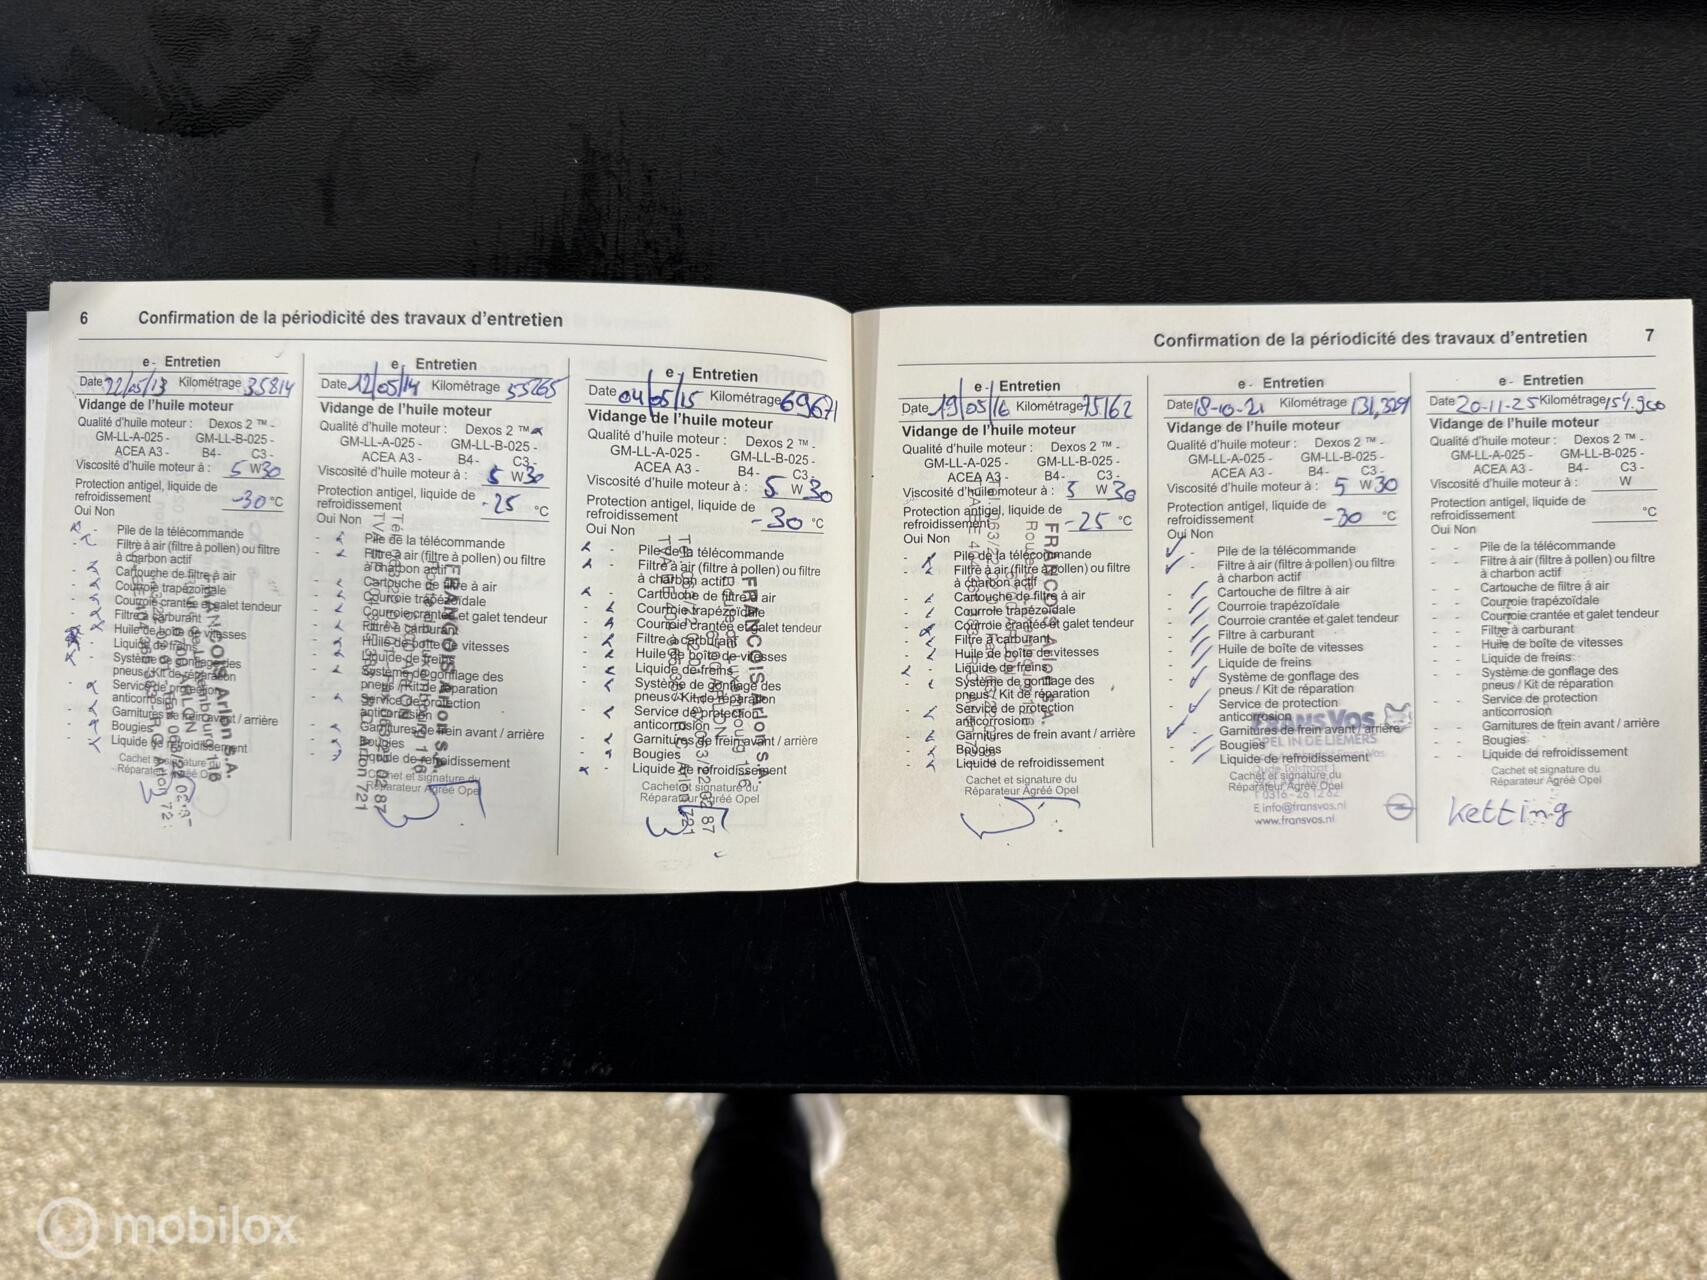 6 Confirmation de la périodicité des travaux d'entretien
e - Entretien
Date 22/05/13 Kilométrage 35814
Vidange de l'huile moteur
Qualité d'huile moteur : Dexos 2 ™ -
GM-LL-A-025 - GM-LL-B-025 -
ACEA A3 - B4 - C3 -
Viscosité d'huile moteur à : 5 W 30
Protection antigel, liquide de
refroidissement -30 °C
Oui Non
- - Pile de la télécommande
- - Filtre à air (filtre à pollen) ou filtre
à charbon actif
- - Cartouche de filtre à air
- - Courroie trapézoïdale
- - Courroie crantée et galet tendeur
- - Filtre à carburant
- - Huile de boîte de vitesses
- - Liquide de freins
- - Système de gonflage des
pneus / Kit de réparation
- - Service de protection
anticorrosion
- - Garnitures de frein avant / arrière
- - Bougies
- - Liquide de refroidissement
Cachet et signature du
Réparateur Agréé Opel
FRANCOIS Arlon S.A.
e - Entretien
Date 12/05/14 Kilométrage 55265
Vidange de l'huile moteur
Qualité d'huile moteur : Dexos 2 ™ x
GM-LL-A-025 - GM-LL-B-025 -
ACEA A3 - B4 - C3 -
Viscosité d'huile moteur à : 5 W 30
Protection antigel, liquide de
refroidissement -25 °C
Oui Non
- - Pile de la télécommande
- - Filtre à air (filtre à pollen) ou filtre
à charbon actif
- - Cartouche de filtre à air
- - Courroie trapézoïdale
- - Courroie crantée et galet tendeur
- - Filtre à carburant
- - Huile de boîte de vitesses
- - Liquide de freins
- - Système de gonflage des
pneus / Kit de réparation
- - Service de protection
anticorrosion
- - Garnitures de frein avant / arrière
- - Bougies
- - Liquide de refroidissement
Cachet et signature du
Réparateur Agréé Opel
FRANCOIS Arlon S.A.
e - Entretien
Date 04/05/15 Kilométrage 69671
Vidange de l'huile moteur
Qualité d'huile moteur : Dexos 2 ™ -
GM-LL-A-025 - GM-LL-B-025 -
ACEA A3 - B4 - C3 -
Viscosité d'huile moteur à : 5 W 30
Protection antigel, liquide de
refroidissement -30 °C
Oui Non
- - Pile de la télécommande
- - Filtre à air (filtre à pollen) ou filtre
à charbon actif
- - Cartouche de filtre à air
- - Courroie trapézoïdale
- - Courroie crantée et galet tendeur
- - Filtre à carburant
- - Huile de boîte de vitesses
- - Liquide de freins
- - Système de gonflage des
pneus / Kit de réparation
- - Service de protection
anticorrosion
- - Garnitures de frein avant / arrière
- - Bougies
- - Liquide de refroidissement
Cachet et signature du
Réparateur Agréé Opel
FRANCOIS Arlon S.A.
Confirmation de la périodicité des travaux d'entretien 7
e - Entretien
Date 19/05/16 Kilométrage 75162
Vidange de l'huile moteur
Qualité d'huile moteur : Dexos 2 ™ -
GM-LL-A-025 - GM-LL-B-025 -
ACEA A3 - B4 - C3 -
Viscosité d'huile moteur à : 5 W 30
Protection antigel, liquide de
refroidissement -25 °C
Oui Non
- - Pile de la télécommande
- - Filtre à air (filtre à pollen) ou filtre
à charbon actif
- - Cartouche de filtre à air
- - Courroie trapézoïdale
- - Courroie crantée et galet tendeur
- - Filtre à carburant
- - Huile de boîte de vitesses
- - Liquide de freins
- - Système de gonflage des
pneus / Kit de réparation
- - Service de protection
anticorrosion
- - Garnitures de frein avant / arrière
- - Bougies
- - Liquide de refroidissement
Cachet et signature du
Réparateur Agréé Opel
FRANCOIS Arlon S.A.
e - Entretien
Date 18-10-21 Kilométrage 131,329
Vidange de l'huile moteur
Qualité d'huile moteur : Dexos 2 ™ -
GM-LL-A-025 - GM-LL-B-025 -
ACEA A3 - B4 - C3 -
Viscosité d'huile moteur à : 5 W 30
Protection antigel, liquide de
refroidissement -30 °C
Oui Non
- - Pile de la télécommande
- - Filtre à air (filtre à pollen) ou filtre
à charbon actif
- - Cartouche de filtre à air
- - Courroie trapézoïdale
- - Courroie crantée et galet tendeur
- - Filtre à carburant
- - Huile de boîte de vitesses
- - Liquide de freins
- - Système de gonflage des
pneus / Kit de réparation
- - Service de protection
anticorrosion
- - Garnitures de frein avant / arrière
- - Bougies
- - Liquide de refroidissement
Cachet et signature du
Réparateur Agréé Opel
FRANSVOS
OPEL IN DE LIEMERS
T 0316 - 26 12 62
E info@fransvos.nl
www.fransvos.nl
e - Entretien
Date 20-11-25 Kilométrage 154.900
Vidange de l'huile moteur
Qualité d'huile moteur : Dexos 2 ™ -
GM-LL-A-025 - GM-LL-B-025 -
ACEA A3 - B4 - C3 -
Viscosité d'huile moteur à : W
Protection antigel, liquide de
refroidissement °C
Oui Non
- - Pile de la télécommande
- - Filtre à air (filtre à pollen) ou filtre
à charbon actif
- - Cartouche de filtre à air
- - Courroie trapézoïdale
- - Courroie crantée et galet tendeur
- - Filtre à carburant
- - Huile de boîte de vitesses
- - Liquide de freins
- - Système de gonflage des
pneus / Kit de réparation
- - Service de protection
anticorrosion
- - Garnitures de frein avant / arrière
- - Bougies
- - Liquide de refroidissement
Cachet et signature du
Réparateur Agréé Opel
Ketting
mobilox